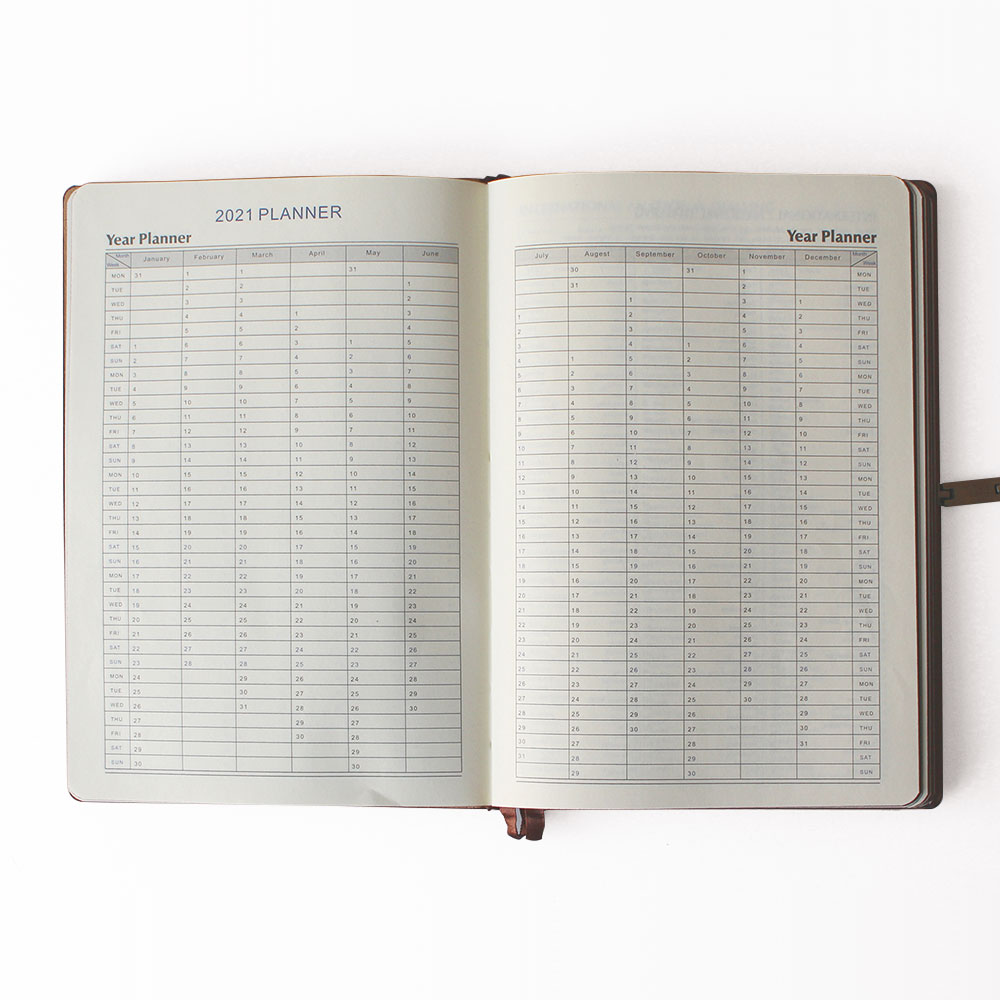 2021 PLANNER
Year Planner
Month Week January February March April May June
MON 31 1 1 31
TUE 2 2 1
WED 3 3 2
THU 4 4 1 3
FRI 5 5 2 4
SAT 1 6 6 3 1 5
SUN 2 7 7 4 2 6
MON 3 8 8 5 3 7
TUE 4 9 9 6 4 8
WED 5 10 10 7 5 9
THU 6 11 11 8 6 10
FRI 7 12 12 9 7 11
SAT 8 13 13 10 8 12
SUN 9 14 14 11 9 13
MON 10 15 15 12 10 14
TUE 11 16 16 13 11 15
WED 12 17 17 14 12 16
THU 13 18 18 15 13 17
FRI 14 19 19 16 14 18
SAT 15 20 20 17 15 19
SUN 16 21 21 18 16 20
MON 17 22 22 19 17 21
TUE 18 23 23 20 18 22
WED 19 24 24 21 19 23
THU 20 25 25 22 20 24
FRI 21 26 26 23 21 25
SAT 22 27 27 24 22 26
SUN 23 28 28 25 23 27
MON 24 29 26 24 28
TUE 25 30 27 25 29
WED 26 31 28 26 30
THU 27 29 27
FRI 28 30 28
SAT 29 29
SUN 30 30
Year Planner
July Augest September October November December Month Week
30 31 1 MON
31 2 TUE
1 3 1 WED
1 2 4 2 THU
2 3 5 3 FRI
3 4 1 6 4 SAT
4 1 5 2 7 5 SUN
5 2 6 3 8 6 MON
6 3 7 4 9 7 TUE
7 4 8 5 10 8 WED
8 5 9 6 11 9 THU
9 6 10 7 12 10 FRI
10 7 11 8 13 11 SAT
11 8 12 9 14 12 SUN
12 9 13 10 15 13 MON
13 10 14 11 16 14 TUE
14 11 15 12 17 15 WED
15 12 16 13 18 16 THU
16 13 17 14 19 17 FRI
17 14 18 15 20 18 SAT
18 15 19 16 21 19 SUN
19 16 20 17 22 20 MON
20 17 21 18 23 21 TUE
21 18 22 19 24 22 WED
22 19 23 20 25 23 THU
23 20 24 21 26 24 FRI
24 21 25 22 27 25 SAT
25 22 26 23 28 26 SUN
26 23 27 24 29 27 MON
27 24 28 25 30 28 TUE
28 25 29 26 29 WED
29 26 30 27 30 THU
30 27 28 31 FRI
31 28 29 SAT
29 30 SUN